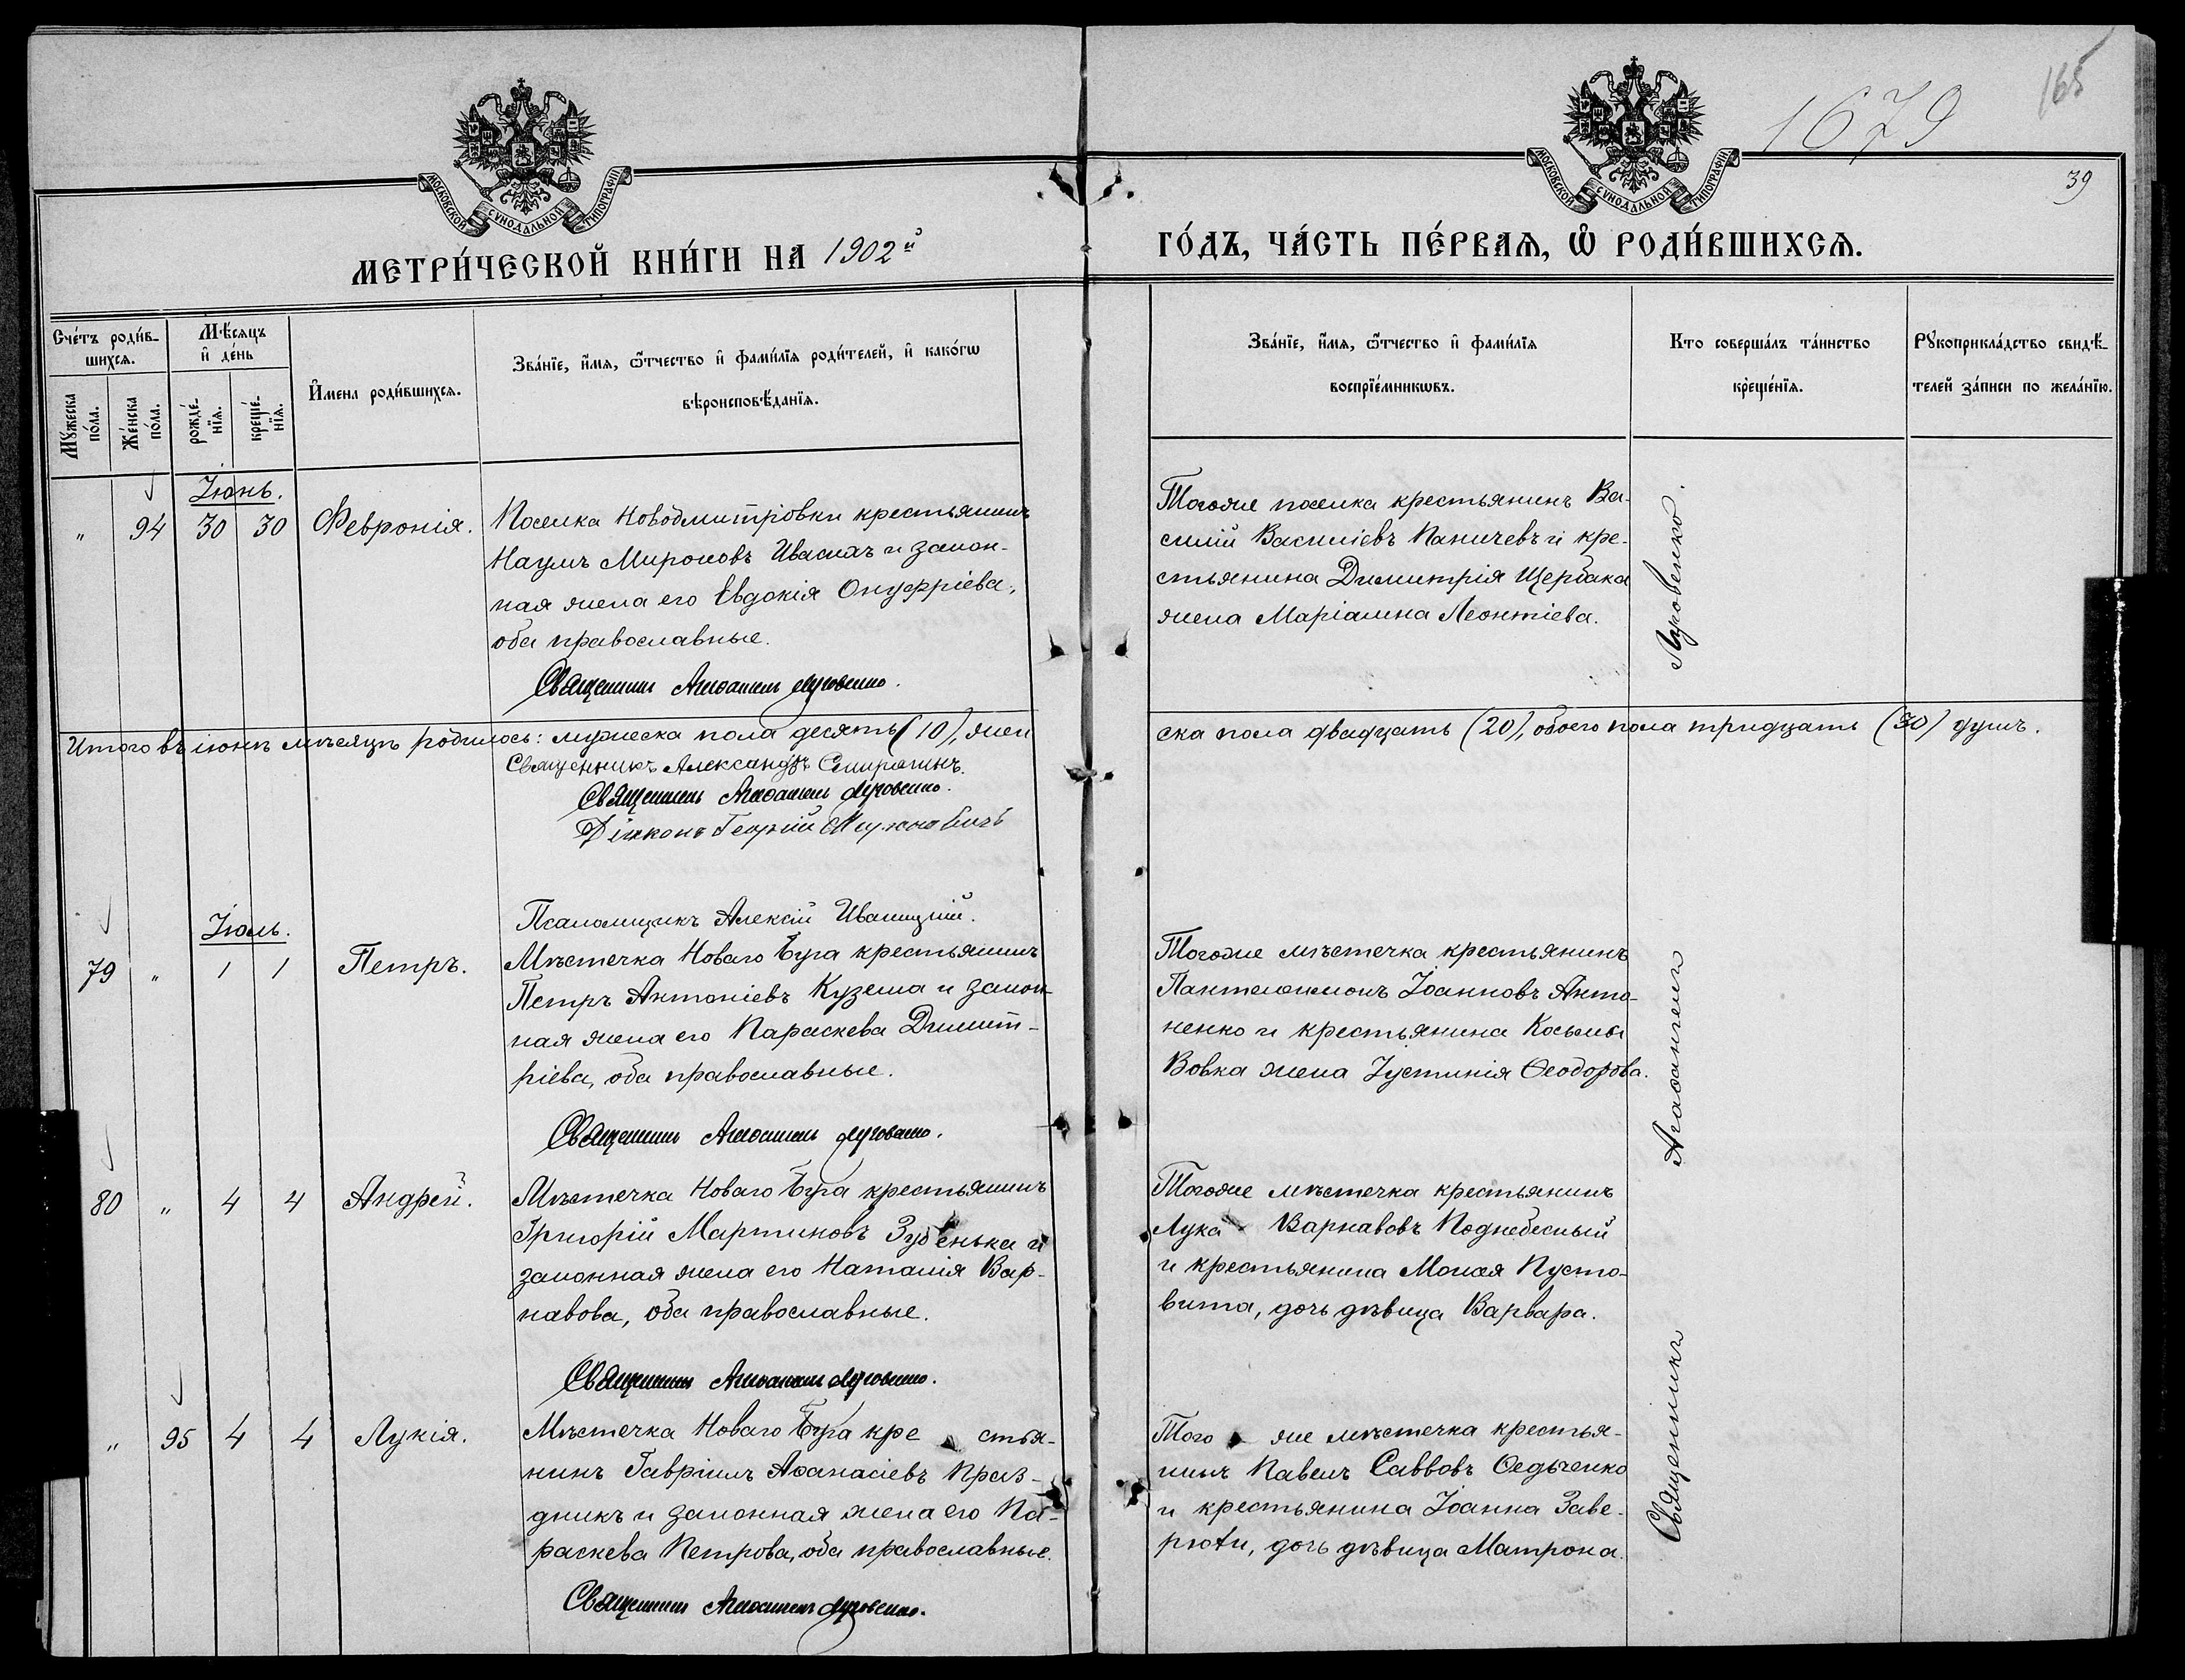 165
1679
39
МОСКОВСКОЙ СѴНОДАЛЬНОЙ ТИПОГРАФІИ
МОСКОВСКОЙ СѴНОДАЛЬНОЙ ТИПОГРАФІИ
МЕТРИ́ЧЕСКОЙ КНИ́ГИ НА 1902й
ГО́ДЪ, ЧА́СТЬ ПЕ́РВАѦ, Ѽ РОДИ́ВШИХСѦ.
Сче́тъ роди́в-
шихсѧ.
Мꙋжеска
по́ла.
Же́нска
по́ла.
Мѣ́сѧцъ
и҆ де́нь
рожде́-
нїѧ.
креще́-
нїѧ.
И҆мена роди́вшихсѧ.
Зва́нїе, и҆́мѧ, ѻ҆́тчество и҆ фами́лїѧ роди́телей, и҆ како́гѡ
вѣроисповѣ́данїѧ.
Зва́нїе, и҆́мѧ, ѻ҆́тчество и҆ фами́лїѧ
воспрїе́мникѡвъ.
Кто соверша́лъ та́инство
креще́нїѧ.
Рꙋкоприкла́дство свидѣ́-
телей за́писи по жела́нїю.
Іюнь.
" 94 30 30 Февронія.
Поселка Новодмитріовки крестьянинъ
Наумъ Мироновъ Ивасихъ и закон-
ная жена его Евдокія Онуфріева,
оба православные.
Священникъ Агаѳангелъ Луговенко.
Тогоже поселка крестьянинъ Ва-
силій Василіевъ Паничевъ и кре-
стьянина Димитрія Щербака
жена Маріамна Леонтіева.
Итого въ іюнѣ мѣсяцѣ родилось: мужеска пола десять (10), жен
ска пола двадцать (20), обоего пола тридцать (30) душъ.
Священникъ Александръ
Священникъ Агаѳангелъ Луговенко.
Діаконъ Георгій
Псаломщикъ Алексій Иваницкій.
Іюль.
79 " 1 1 Петръ.
Мѣстечка Новаго Буга крестьянинъ
Петръ Антоніевъ Кузема и закон-
ная жена его Параскева Димит-
ріева, оба православные.
Священникъ Агаѳангелъ Луговенко.
Тогоже мѣстечка крестьянинъ
Пантелеимонъ Іоанновъ Анто-
ненко и крестьянина Косьмы
Вовка жена Іустинія Ѳеодорова.
80 " 4 4 Андрей.
Мѣстечка Новаго Буга крестьянинъ
Григорій Мартиновъ Зубенька и
законная жена его Наталія Вар-
навова, оба православные.
Священникъ Агаѳангелъ Луговенко.
Тогоже мѣстечка крестьянинъ
Лука Варнавовъ Поднебесный
и крестьянина Моисея Пусто-
вита, дочь дѣвица Варвара.
" 95 4 4 Лукія.
Мѣстечка Новаго Буга кре стья-
нинъ Гавріилъ Аѳанасіевъ Праз-
дникъ и законная жена его Па-
раскева Петрова, оба православные.
Священникъ Агаѳангелъ Луговенко.
Того же мѣстечка крестья-
нинъ Павелъ Саввовъ Ѳедьченко
и крестьянина Іоанна Заве-
рюхи, дочь дѣвица Матрона.
Священникъ Агаѳангелъ Луговенко.